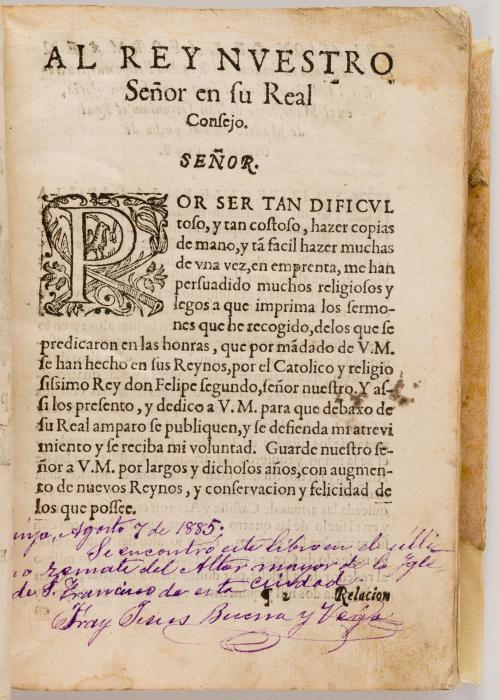 AL REY NVESTRO
Señor en ſu Real
Conſejo.
SEÑOR.
POR SER TAN DIFICVL
toſo, y tan coſtoſo, hazer copias
de mano, y tã facil hazer muchas
de vna vez, en emprenta, me han
perſuadido muchos religioſos y
legos a que imprima los ſermo-
nes que he recogido, delos que ſe
predicaron en las honras, que por mãdado de V.M.
ſe han hecho en sus Reynos, por el Catolico y religio
ſiſsimo Rey don Felipe ſegundo, ſeñor nueſtro. Y aſ-
ſi los preſento, y dedico a V. M. para que debaxo de
ſu Real amparo ſe publiquen, y ſe defienda mi atrevi
miento y ſe reciba mi voluntad. Guarde nueſtro ſe-
ñor a V.M. por largos y dichoſos años, con augmen-
to de nuevos Reynos, y conſervacion y felicidad de
los que poſſee.
Agosto 7 de 1885.
Se encontró este libro en el
remate del Altar mayor de la Igle
de S. Francisco de esta Ciudad.
¶ 2 Relacion
Fray Jesus Buena y Vega